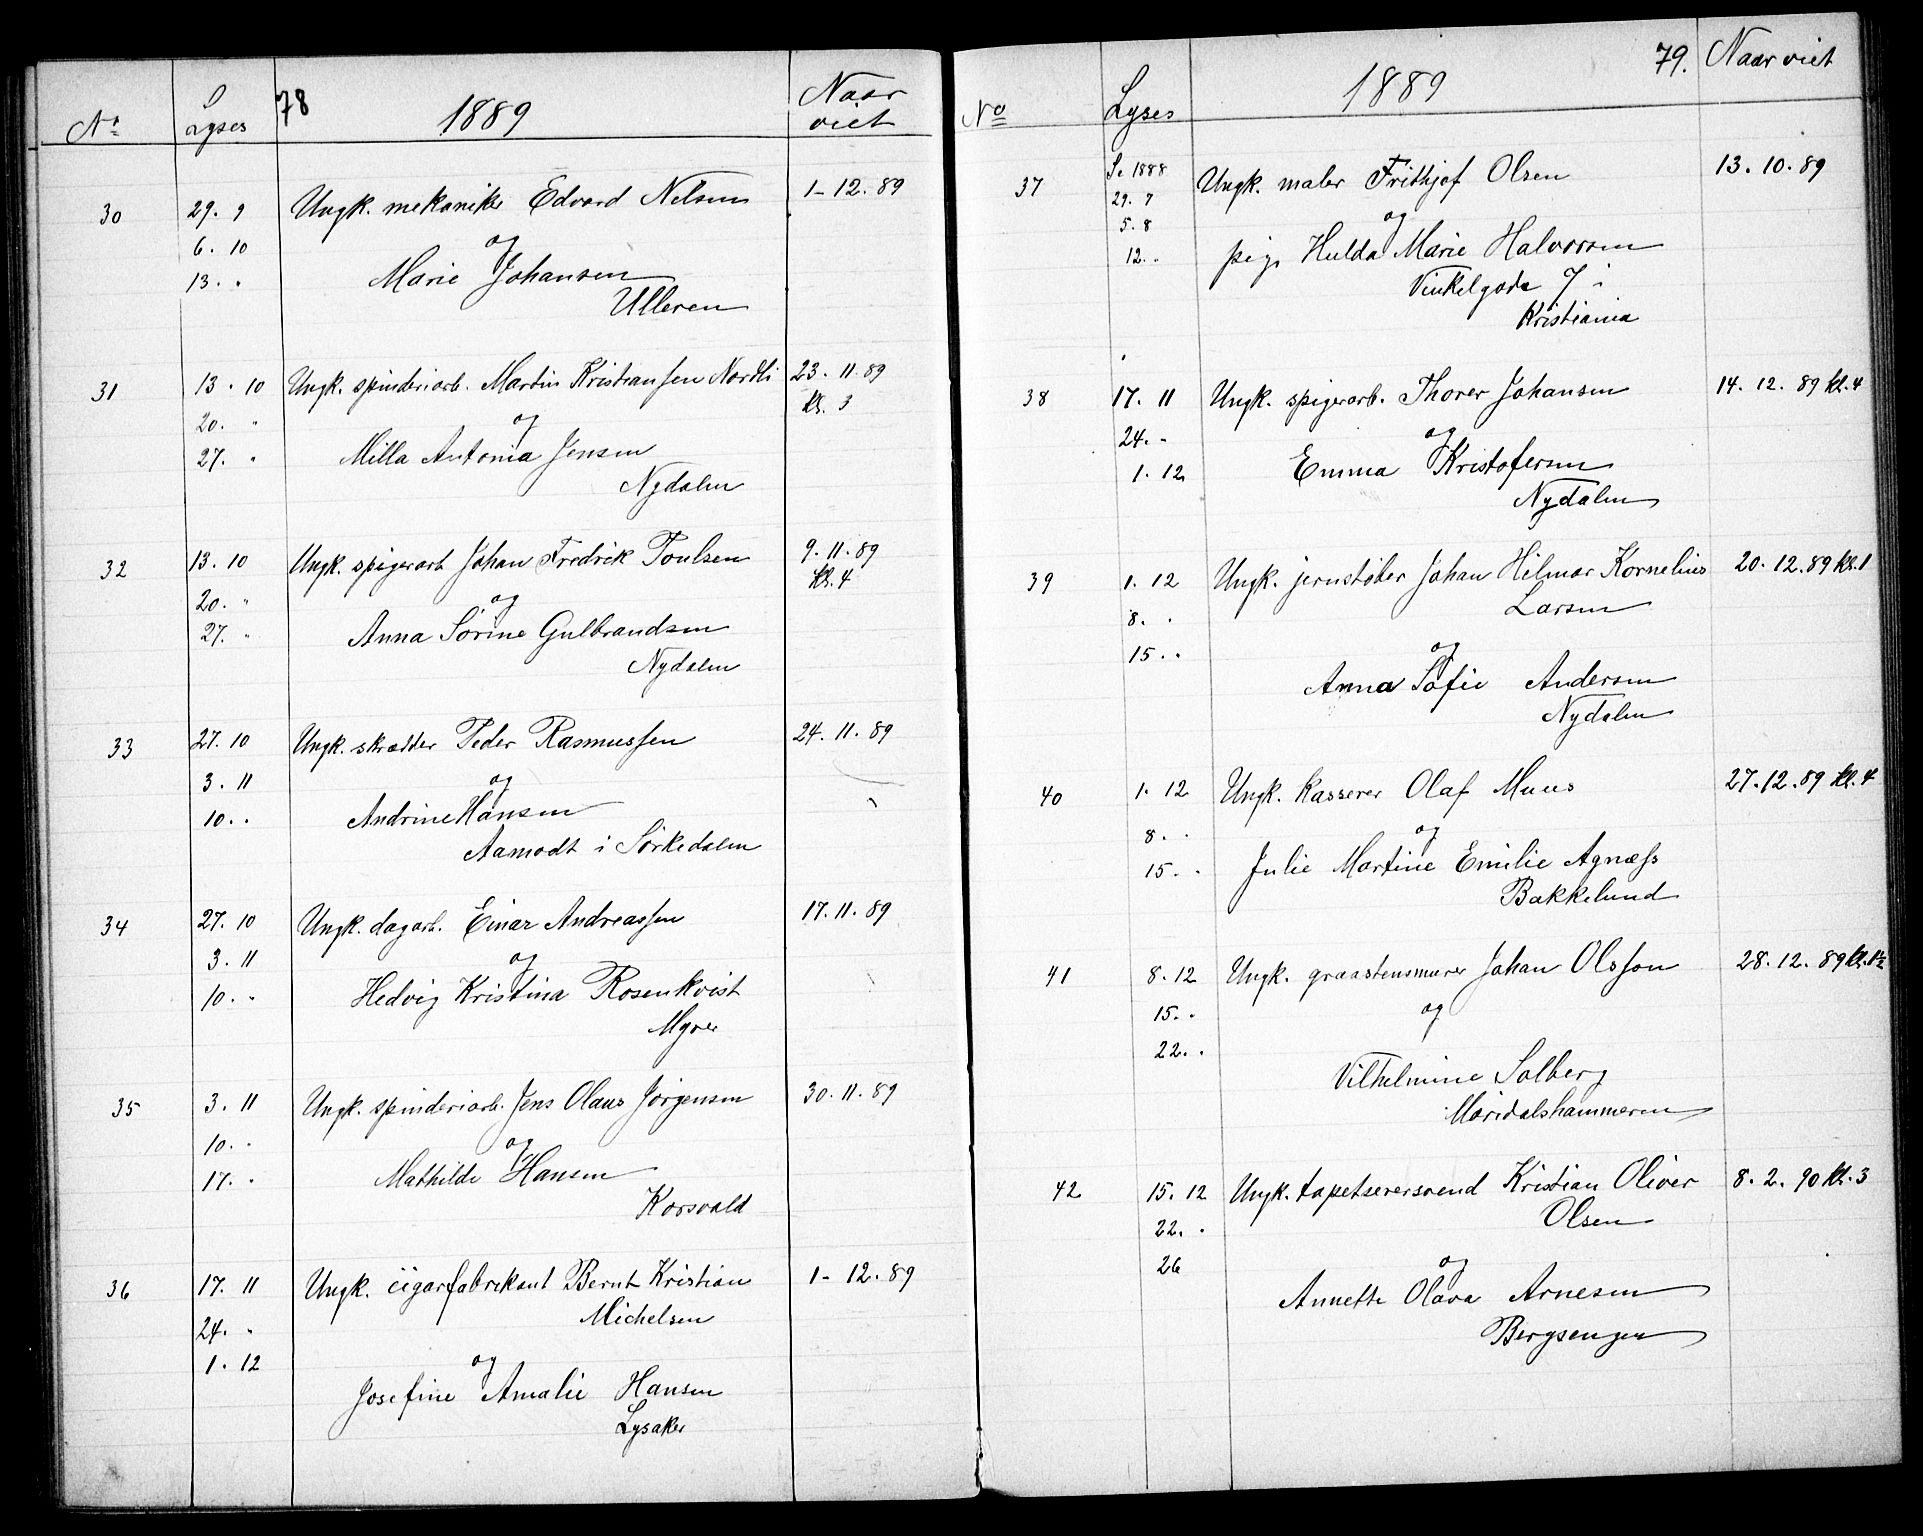 78
No Lyses 1889 Naar viet
30 29. 9 Ungk. mekaniker Edvard Nelsen 1-12.89
6. 10 og
13. " Marie Johansen
Ulleren
31 13. 10 Ungk. spinderiarb. Martin Kristiansen Nordli 23.11.89
20. " og kl. 3
27. " Milla Antonia Jensen
Nydalen
32 13. 10 Ungk. spigerarb Johan Fredrik Poulsen 9.11.89
20. " og kl. 4
27. " Anna Sørine Gulbrandsen
Nydalen
33 27. 10 Ungk. skrædder Peder Rasmussen 24.11.89
3. 11 og
10. " Andrine Hansen
Aamodt i Sørkedalen
34 27. 10 Ungk. dagarb. Einar Andreassen 17.11.89
3. 11 og
10. " Hedvig Kristina Rosenkvist
Myrer
35 3. 11 Ungk. spinderiarb. Jens Olaus Jørgensen 30.11.89
10. " og
17. " Mathilde Hansen
Korsvald
36 17. 11 Ungk. cigarfabrikant Bernt Kristian 1-12.89
24. " Michelsen
1. 12 og
Josefine Amalie Hansen
Lysaker
79.
No Lyses 1889 Naar viet
37 Se 1888 Ungk. maler Frithjof Olsen 13.10.89
29. 7
5. 8 og
12. " pige Hulda Marie Halvorsen
Vinkelgade 7 i
Kristiania
38 17. 11 Ungk. spigerarb. Thorer Johansen 14.12.89 kl. 4
24. " og
1. 12 Emma Kristofersen
Nydalen
39 1. 12 Ungk. jernstøber Johan Hilmar Kornelius 20.12.89 kl. 1
8. " Larsen
15. " og
Anna Sofie Andersen
Nydalen
40 1. 12 Ungk. Kasserer Olaf Muus 27.12.89 kl. 4
8. " og
15. " Julie Martine Emilie Agnæss
Bakkelund
41 8. 12 Ungk. graastensmurer Johan Olsson 28.12.89 kl. 1½
15. " og
22. "
Vilhelmine Solberg
Maridalshammeren
42 15. 12 Ungk. tapetserersvend Kristian Oliver 8.2.90 kl. 3
22. " Olsen
26 og
Annette Olava Arnesen
Bergsengen